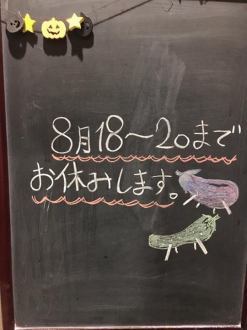 8月18〜20まで
お休みします。